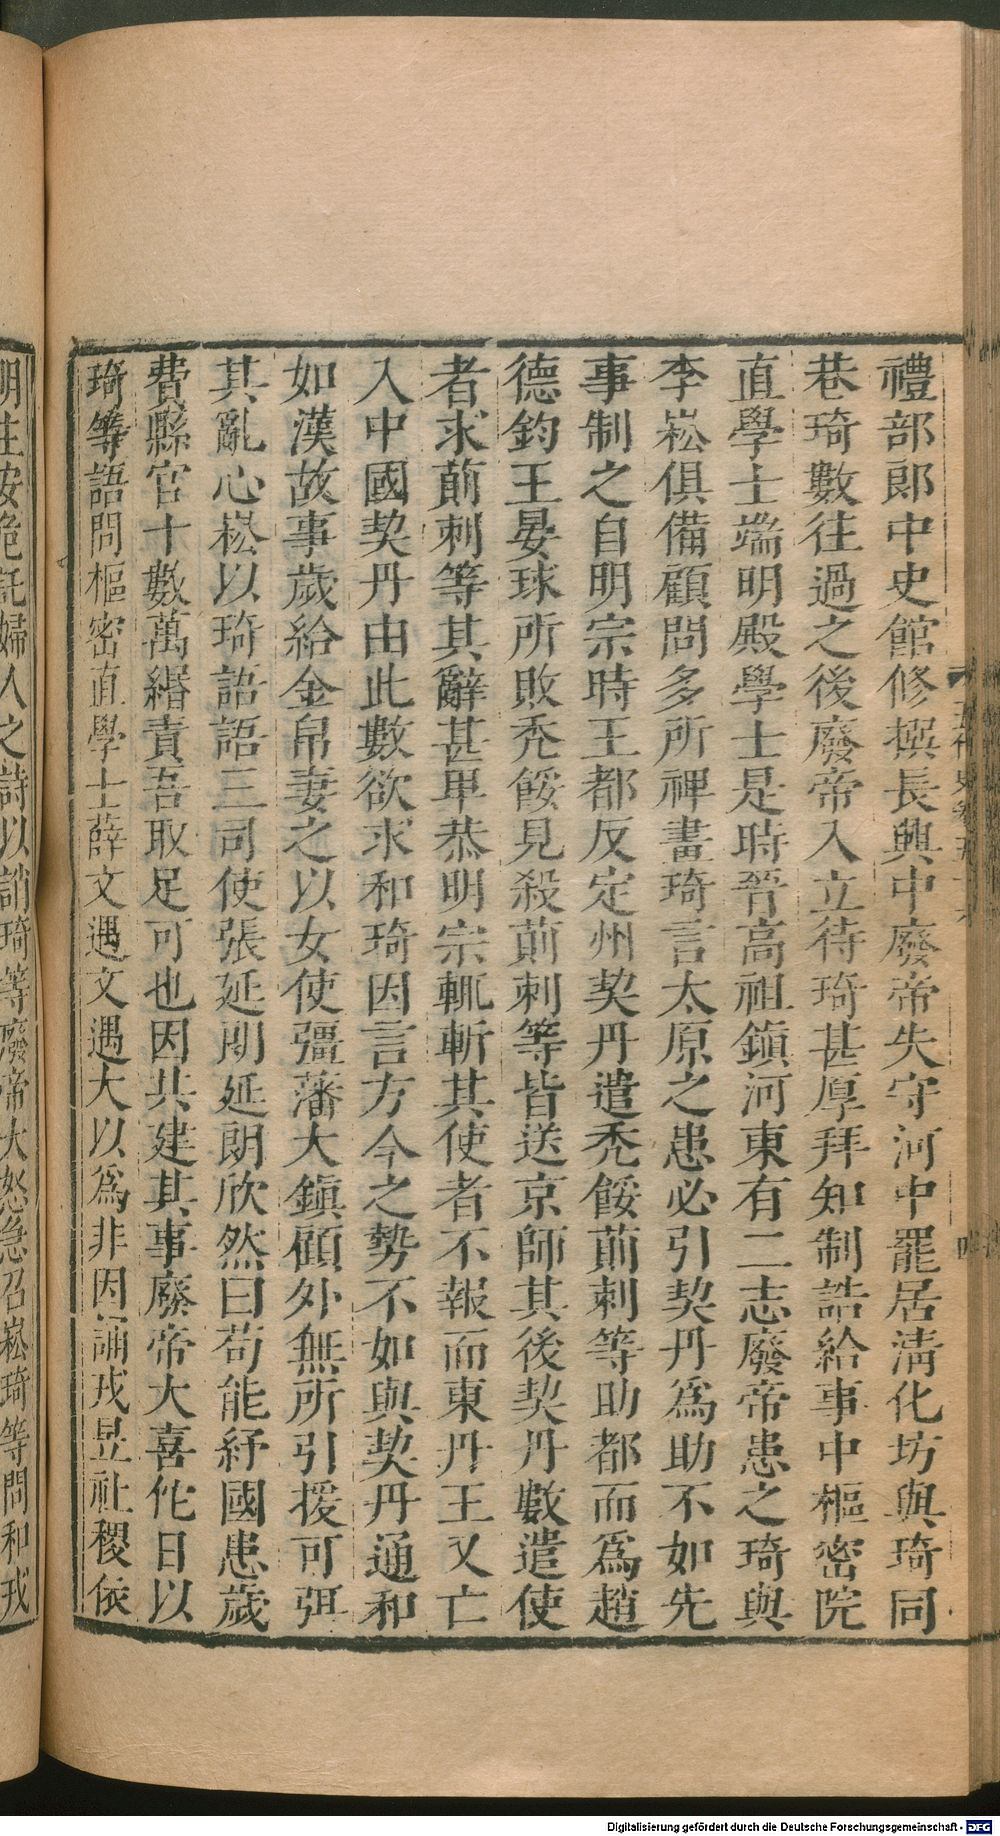 禮部郎中史館修撰長興中廢帝失守河中罷居清化坊與琦同
巷琦數往過之後廢帝入立待琦甚厚拜知制誥給事中樞密院
直學士端明殿學士是時晉高祖鎮河東有二志廢帝患之琦與
李崧俱備顧問多所裨畫琦言太原之患必引契丹為助不如先
事制之自明宗時王都反定州契丹遣禿餒萴剌等助都而為趙
德鈞王晏球所敗禿餒見殺萴剌等皆送京師其後契丹數遣使
者求萴剌等其辭甚卑恭明宗輒斬其使者不報而東丹王又亡
入中國契丹由此數欲求和琦因言方今之勢不如與契丹通和
如漢故事歲給金帛妻之以女使彊藩大鎮顧外無所引援可弭
其亂心崧以琦語語三司使張延朗延朗欣然曰苟能紓國患歲
費縣官十數萬緡責吾取足可也因共建其事廢帝大喜佗日以
琦等語問樞密直學士薛文遇文遇大以為非因誦戎昱社稷依
明主安危託婦人之詩以誚琦等廢帝大怒急召崧琦等問和戎